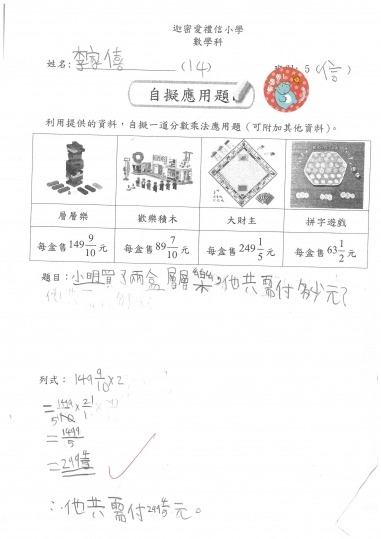 迦密愛禮信小學
數學科
姓名：李家僖（14） 5（信）
自擬應用題
利用提供的資料，自擬一道分數乘法應用題（可附加其他資料）。
層層樂 歡樂積木 大財主 拼字遊戲
每盒售149 9/10元 每盒售89 7/10元 每盒售249 1/5元 每盒售63 1/2元
題目：小明買了兩盒層層樂，他共需付多少元？
列式：149 9/10 × 2
= 1499/10 × 2/1
= 1499/5
= 299 4/5
∴他共需付299 4/5元。